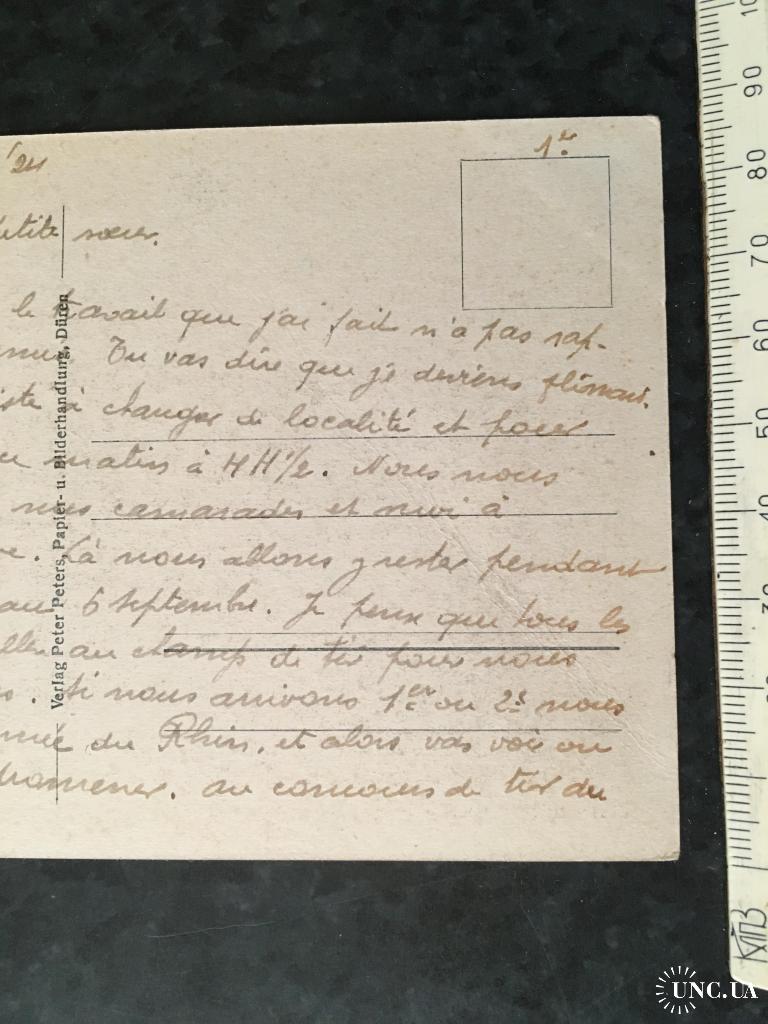 '24
1er
petite sœur.
le travail que j'ai fait n'a pas rap-
Tu vas dire que je deviens
à changer de localité et pour
matin à 4H1/2. Nous nous
nos camarades et suivi à
Là nous allons y rester pendant
au 6 septembre. Je peux que tous les
au champ de tir pour nous
si nous arrivons 1er ou 2e nous
du Rhin, et alors vas voir ou
au concours de tir du
Verlag Peter Peters, Papier- u. Bilderhandlung, Düren
100
90
80
70
60
50
40
30
UNC.UA